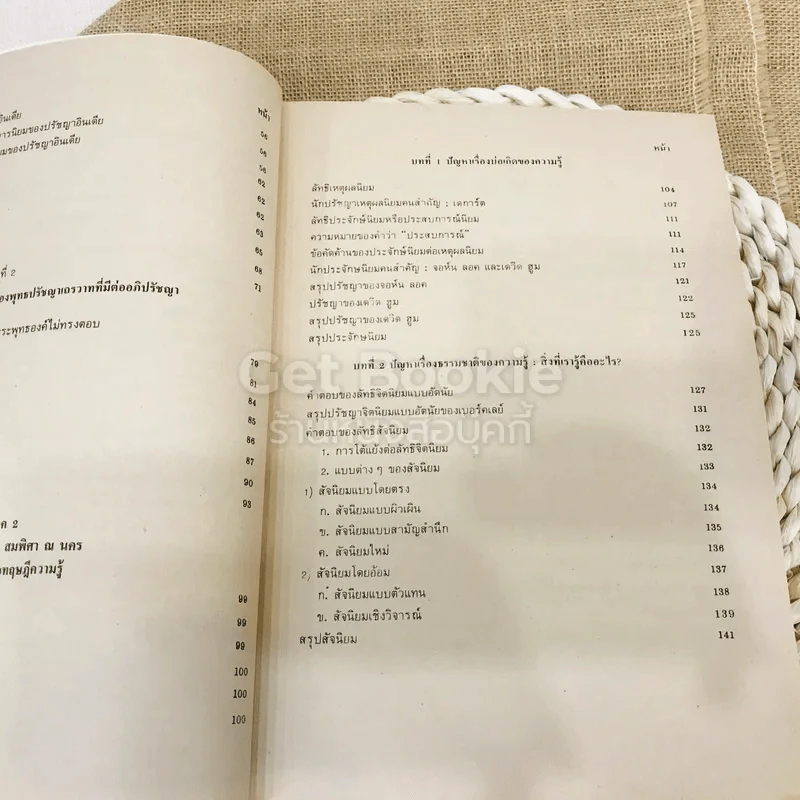 หน้า
อินเดีย
ารนิยมของปรัชญาอินเดีย
56
ยมของปรัชญาอินเดีย
56
56
62
62
62
63
65
68
ที่ 2
71
องพุทธปรัชญาเถรวาทที่มีต่ออภิปรัชญา
ระพุทธองค์ไม่ทรงตอบ
79
81
84
85
86
87
90
93
ค 2
สมพิศา ณ นคร
ทฤษฎีความรู้
99
99
99
100
100
100
หน้า
บทที่ 1 ปัญหาเรื่องบ่อเกิดของความรู้
ลัทธิเหตุผลนิยม 104
นักปรัชญาเหตุผลนิยมคนสำคัญ : เดการ์ต 107
ลัทธิประจักษ์นิยมหรือประสบการณ์นิยม 111
ความหมายของคำว่า "ประสบการณ์" 111
ข้อคัดค้านของประจักษ์นิยมต่อเหตุผลนิยม 114
นักประจักษนิยมคนสำคัญ : จอห์น ลอค และเดวิด ฮูม 117
สรุปปรัชญาของจอห์น ลอค 121
ปรัชญาของเดวิด ฮูม 122
สรุปปรัชญาของเดวิด ฮูม 125
สรุปประจักษนิยม 125
บทที่ 2 ปัญหาเรื่องธรรมชาติของความรู้ : สิ่งที่เรารู้คืออะไร?
คำตอบของลัทธิจิตนิยมแบบอัตนัย 127
สรุปปรัชญาจิตนิยมแบบอัตนัยของเบอร์คเลย์ 131
คำตอบของลัทธิสัจนิยม 132
1. การโต้แย้งต่อลัทธิจิตนิยม 132
2. แบบต่าง ๆ ของสัจนิยม 133
1) สัจนิยมแบบโดยตรง 134
ก. สัจนิยมแบบผิวเผิน 134
ข. สัจนิยมแบบสามัญสำนึก 135
ค. สัจนิยมใหม่ 136
2) สัจนิยมโดยอ้อม 137
ก. สัจนิยมแบบตัวแทน 138
ข. สัจนิยมเชิงวิจารณ์ 139
สรุปสัจนิยม 141
Get Bookie
ร้านหนังสือบุคกี้